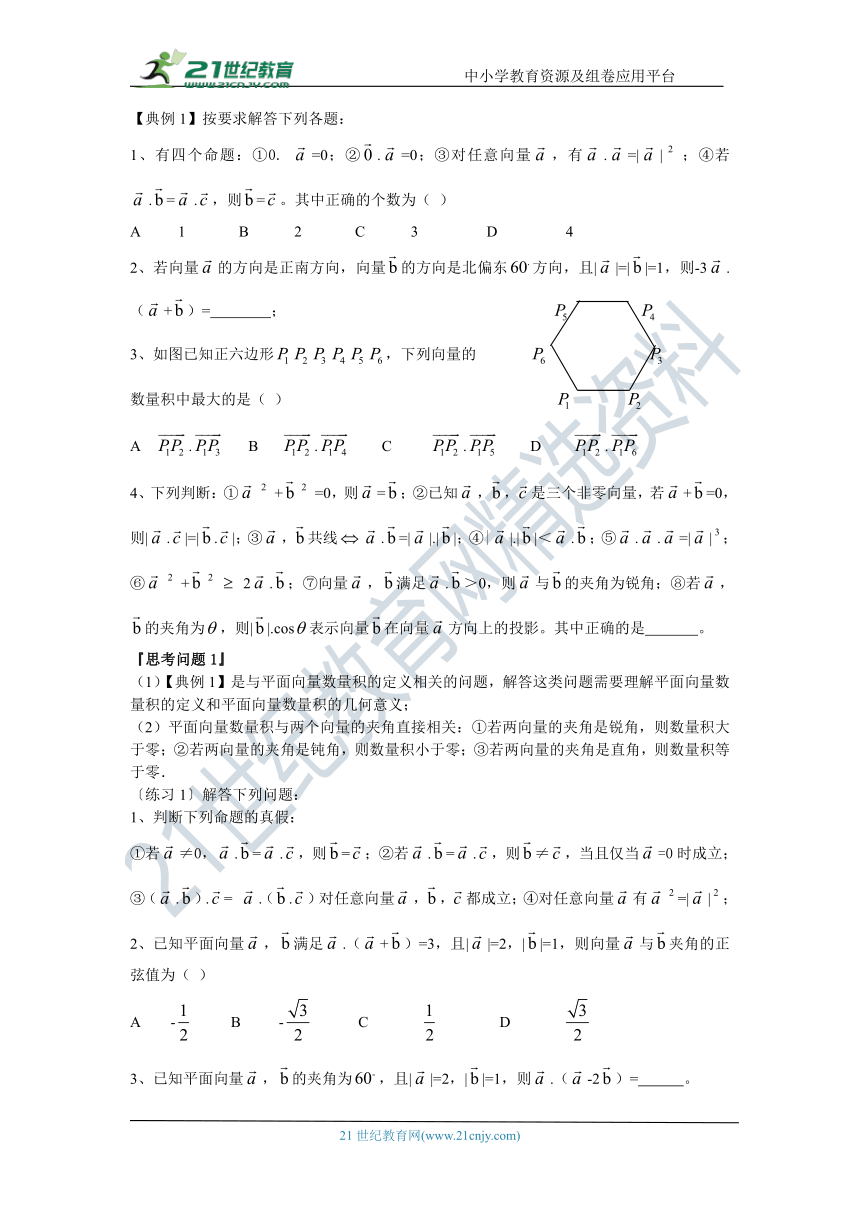 21世纪教育
WWW.21CNJY.COM
中小学教育资源及组卷应用平台
【典例1】按要求解答下列各题:
1、有四个命题:①0. a⃗ =0;②0⃗.a⃗ =0;③对任意向量a⃗,有a⃗.a⃗ =|a⃗|²;④若
a⃗.b⃗=a⃗.c⃗,则b⃗=c⃗。其中正确的个数为( )
A 1 B 2 C 3 D 4
2、若向量a⃗的方向是正南方向,向量b⃗的方向是北偏东60°方向,且|a⃗|=|b⃗|=1,则-3a⃗.
(a⃗+b⃗)= ;
P₅ P₄
3、如图已知正六边形P₁P₂P₃P₄P₅P₆,下列向量的 P₆ P₃
数量积中最大的是( ) P₁ P₂
A P₁P₂⃗.P₁P₃⃗ B P₁P₂⃗.P₁P₄⃗ C P₁P₂⃗.P₁P₅⃗ D P₁P₂⃗.P₁P₆⃗
4、下列判断:①a⃗²+b⃗²=0,则a⃗=b⃗;②已知a⃗,b⃗,c⃗是三个非零向量,若a⃗+b⃗=0,
则|a⃗.c⃗|=|b⃗.c⃗|;③a⃗,b⃗共线⇔a⃗.b⃗=|a⃗|.|b⃗|;④|a⃗|.|b⃗|<a⃗.b⃗;⑤a⃗.a⃗.a⃗=|a⃗|³;
⑥a⃗²+b⃗²≥2a⃗.b⃗;⑦向量a⃗,b⃗满足a⃗.b⃗>0,则a⃗与b⃗的夹角为锐角;⑧若a⃗,
b⃗的夹角为θ,则|b⃗|.cosθ表示向量b⃗在向量a⃗方向上的投影。其中正确的是 。
『思考问题1』
(1)【典例1】是与平面向量数量积的定义相关的问题,解答这类问题需要理解平面向量数
量积的定义和平面向量数量积的几何意义;
(2)平面向量数量积与两个向量的夹角直接相关:①若两向量的夹角是锐角,则数量积大
于零;②若两向量的夹角是钝角,则数量积小于零;③若两向量的夹角是直角,则数量积等
于零.
〔练习1〕解答下列问题:
1、判断下列命题的真假:
①若a⃗≠0,a⃗.b⃗=a⃗.c⃗,则b⃗=c⃗;②若a⃗.b⃗=a⃗.c⃗,则b⃗≠c⃗,当且仅当a⃗=0时成立;
③(a⃗.b⃗).c⃗= a⃗.(b⃗.c⃗)对任意向量a⃗,b⃗,c⃗都成立;④对任意向量a⃗有a⃗²=|a⃗|²;
2、已知平面向量a⃗,b⃗满足a⃗.(a⃗+b⃗)=3,且|a⃗|=2,|b⃗|=1,则向量a⃗与b⃗夹角的正
弦值为( )
A -1/2 B -√3/2 C 1/2 D √3/2
3、已知平面向量a⃗,b⃗的夹角为60°,且|a⃗|=2,|b⃗|=1,则a⃗.(a⃗-2b⃗)= 。
21世纪教育网(www.21cnjy.com)
21世纪教育网精选资料